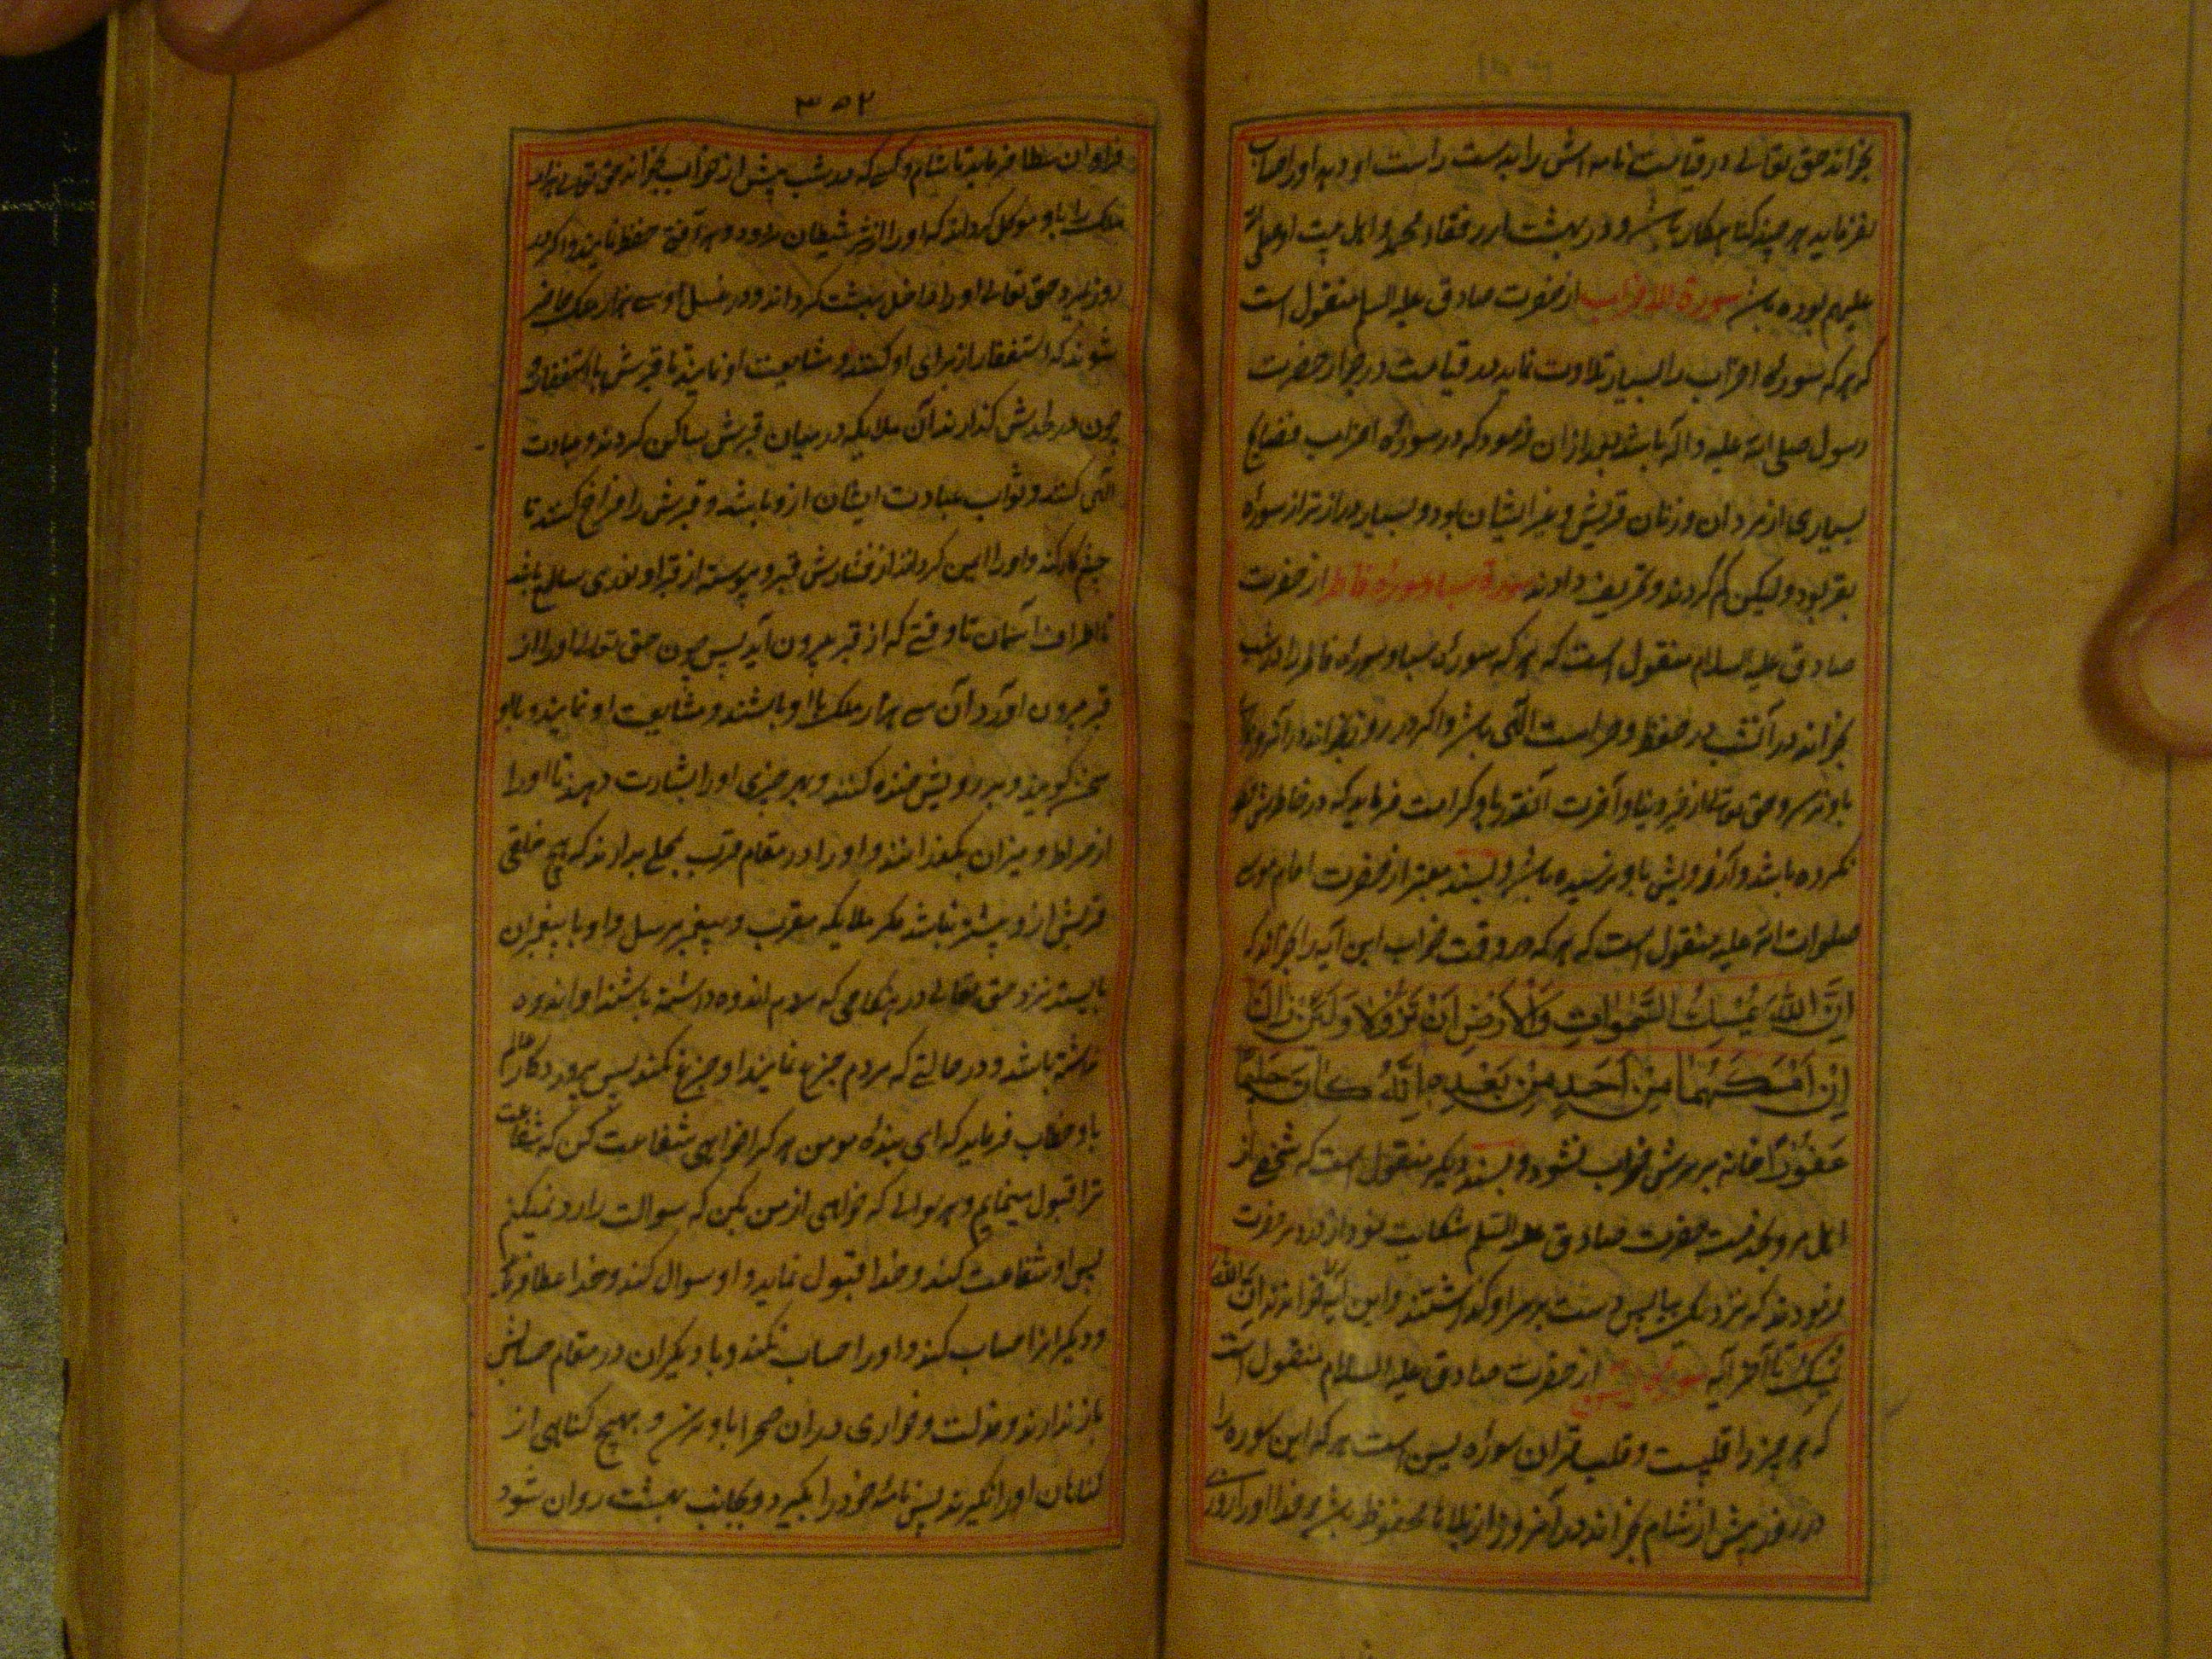 بخواند حق تعالی در قیامت نامه اش را بدست راست او دهد و او را حساب
نفرماید هر چند کناهکار باشد و در بهشت از رفقاء محمد و اهل بیت او صلی الله
علیهم بوده باشد سورة الاحزاب از حضرت صادق علیه السلم منقول است
که هر که سورهٔ احزاب را بسیار تلاوت نماید در قیامت در جوار حضرت
رسول صلی الله علیه و اله باشد بعد ازان فرمود که در سورهٔ احزاب فضایح
بسیاری از مردان و زنان قریش و غیر ایشان بود و بسیار دراز تر از سورهٔ
بقر بود و لیکن کم کردند و تحریف دادند سورة سبا و سوره فاطر از حضرت
صادق علیه السلام منقول است که هر که سورهٔ سبا و سورهٔ فاطر را در شب
بخواند در آنشب در حفظ و حراست الهی باشد و اکر در روز بخواند در آنروز
باو نرسد و حق تعالی از خیر دنیا و آخرت آنقدر باو کرامت فرماید که در خاطرش خطور
نکرده باشد و آرزویش باو نرسیده باشد و بسند معتبر از حضرت امام موسی
صلوات الله علیه منقول است که هر که در وقت خواب این آیه را بخواند که
اِنَّ اللّٰهَ یُمْسِكُ السَّمٰوَاتِ وَالْاَرْضَ اَنْ تَزُوْلَا وَلَئِنْ زَالَتَا
اِنْ اَمْسَكَهُمَا مِنْ اَحَدٍ مِنْ بَعْدِهٖ اِنَّهُ كَانَ حَلِیْمًا
غَفُوْرًا خانه بر سرش خراب نشود و بسند دیکر منقول است که شخصی از
اهل مرو بخدمت حضرت صادق علیه السلم شکایت نمود از درد سر حضرت
فرمودند که نزدیک بیا پس دست بر سر او کذاشتند و این آیه را خواندند ان الله
یمسك تا آخر آیه سورة یس از حضرت صادق علیه السلام منقول است
که هر چیز را قلبیست و قلب قرآن سورهٔ یس است هر که این سوره را
در روز پیش از شام بخواند در آنروز از بلاها محفوظ باشد و خدا او را روزی
۳۵۲
فراوان عطا فرماید تا شام و کسی که در شب پیش از خواب بخواند حق تعالی هزار
ملک را باو موکل کرداند که او را از شر شیطان مردود و هر آفتی حفظ نمایند و اکر در
روز بمیرد حق تعالی او را داخل بهشت کرداند و در غسل او سی هزار ملک حاضر
شوند که استغفار از برای او کنند و مشایعت او نمایند تا قبرش با استغفار و
چون در لحدش کذارند آن ملایکه در میان قبرش ساکن کردند و عبادت
الهی کنند و ثواب عبادت ایشان ازو باشد و قبرش را فراخ کنند تا
چشم کار کند و او را ایمن کردانند از فشارش قبر و پیوسته از قبر او نوری ساطع باشد
تا اطراف آسمان تا وقتی که از قبر بیرون آید پس چون حق تعالی او را از
قبر بیرون آورد آن سی هزار ملک با او باشند و مشایعت او نمایند و با او
سخن کویند و بر رویش خنده کنند و بهر چیزی او را بشارت دهند تا او را
از صراط و میزان بکذرانند و او را در مقام قرب بمحلی بدارند که هیچ خلقی
قربش ازو بیشتر نباشد مکر ملایکه مقرب و پیغمبر مرسل و او با پیغمبران
بایستد نزد حق تعالی در هنکامی که مردم اندوه داشته باشند او اندوه
نداشته باشد و در حالتی که مردم جزع نمایند او جزع نکند پس پروردکار عالم
باو خطاب فرماید که ای بندهٔ مومن هر کرا خواهی شفاعت کن که شفاعت
ترا قبول مینمایم و هر سوالی که خواهی از من بکن که سوالت را رد نمیکنم
پس او شفاعت کند و خدا قبول نماید و او سوال کند و خدا عطا فرماید
و دیکرانرا حساب کنند و او را حساب نکنند و با دیکران در مقام حسابش
باز ندارند و مذلت و خواری دران صحرا باو نرسد و بهیچ کناهی از
کناهان او را نکیرند پس نامهٔ خود را بکیرد و بجانب بهشت روان شود